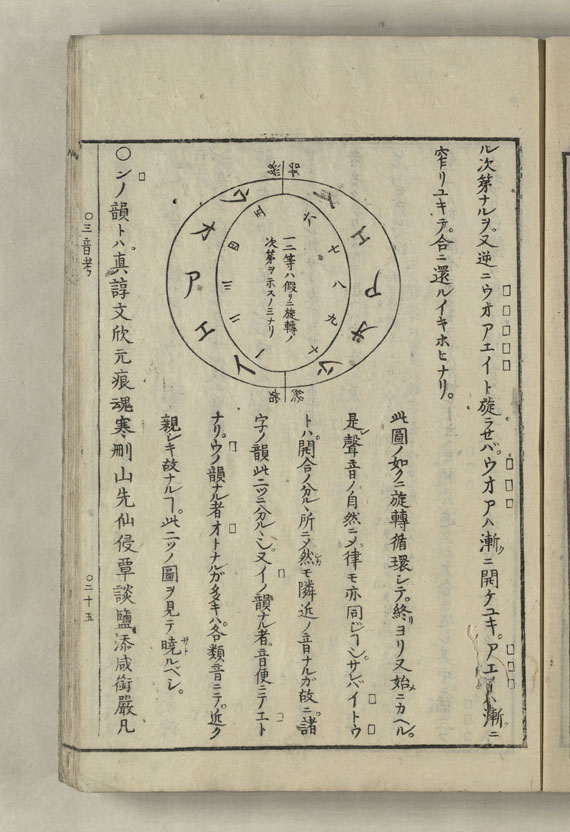 ル次第ナルヲ。又逆ニウオアエイト旋ラセバ。ウオアハ漸々ニ開ケユキ。アエイハ漸々ニ
窄リユキテ。合ニ還ルイキホヒナリ。
始 終
イ エ ア オ ウ
六 七 八 九 十
一二等ハ假リニ旋轉ノ
次第ヲホスノミナリ
ウ オ ア エ イ
五 四 三 二 一
終 始
此圖ノ如クニ旋轉循環シテ。終ヨリ又始ニカヘル。
是レ聲音ノ自然ニメ律モ亦同ジヿ也。サレバイトウ
トハ。開合ノ分ルヽ所ニメ然モ隣近ノ音ナルガ故ニ。諸
字ノ韻此ニツニ分ルヽ也。又イノ韻ナル者。音便ニテエト
ナリ。ウノ韻ナル者オトナルガ多キハ。各類音ニテ。近ク
親シキ故ナルヿ。此ニツノ圖ヲ見テ曉ルベシ。
サト
〇ンノ韻トハ。真諄文欣元痕魂寒刪山先仙侵覃談鹽添咸銜嚴凡
〇三音考
〇二十五